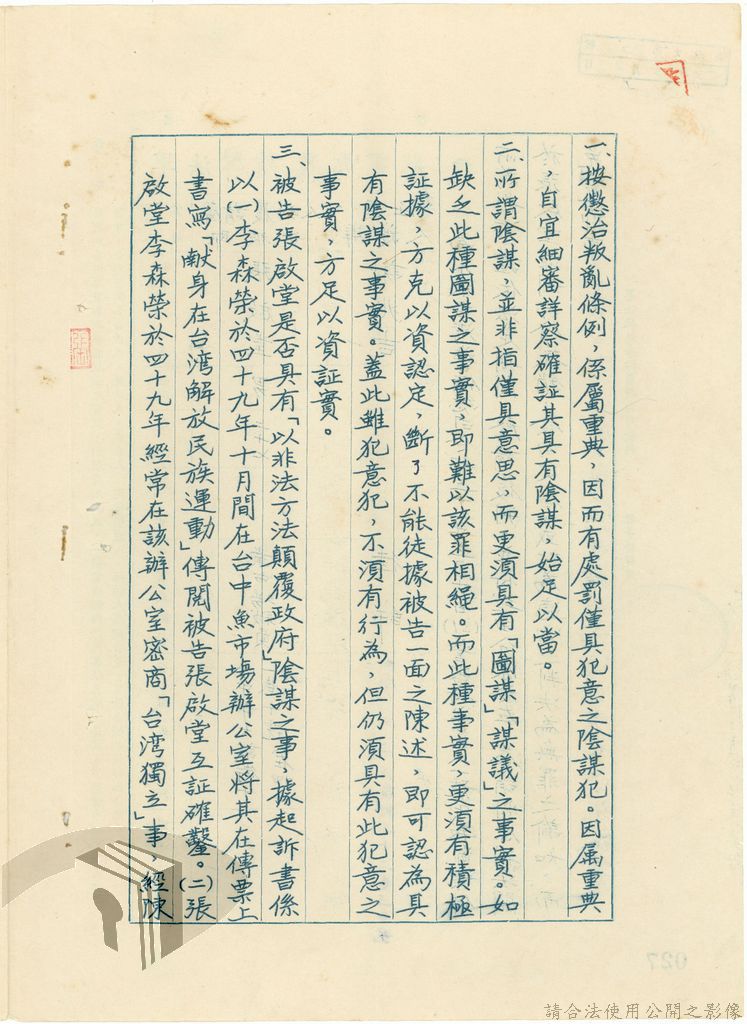 一、按懲治叛亂條例，係屬重典，因而有處罰僅具犯意之陰謀犯。因属重典
，自宜細審詳察確証其具有陰謀，始足以當。
二、所謂陰謀，並非指僅具意思，而更須具有「圖謀」「謀議」之事實。如
缺乏此種圖謀之事實，即難以該罪相繩。而此種事實，更須有積極
証據，方克以資認定，斷了不能徒據被告一面之陳述，即可認為具
有陰謀之事實。蓋此雖犯意犯，不須有行為，但仍須具有此犯意之
事實，方足以資証實。
三、被告張啟堂是否具有「以非法方法顛覆政府」陰謀之事，據起訴書係
以(一)李森榮於四十九年十月間在台中魚市場辦公室將其在傳票上
書寫「献身在台湾解放民族運動」傳閱被告張啟堂互証確鑿。(二)張
啟堂李森榮於四十九年經常在該辦公室密商「台湾獨立」事，經陳
027
請合法使用公開之影像